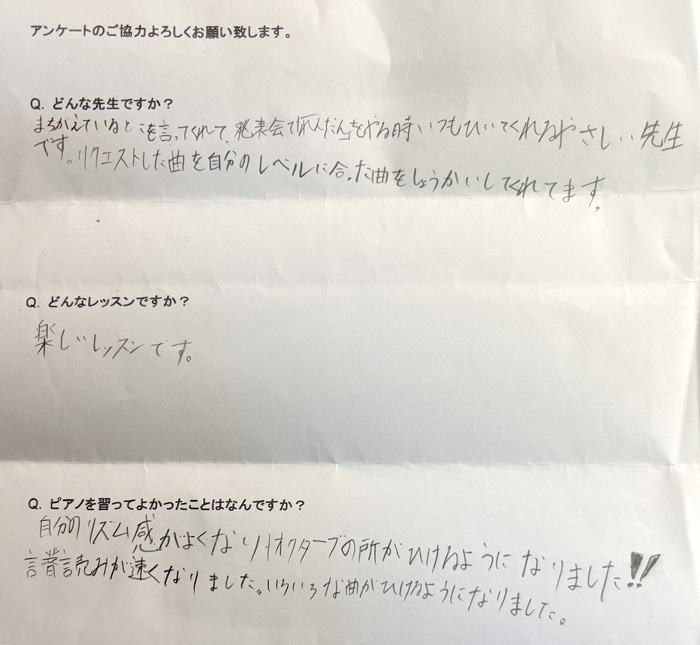 アンケートのご協力よろしくお願い致します。
Q. どんな先生ですか？
まちがえているとこを言ってくれて、発表会でれんだんをやる時いつもひいてくれるやさしい先生
です。リクエストした曲を自分のレベルに合った曲をしょうかいしてくれてます。
Q. どんなレッスンですか？
楽しいレッスンです。
Q. ピアノを習ってよかったことはなんですか？
自分のリズム感がよくなり1オクターブの所がひけるようになりました!!
譜読みが速くなりました。いろいろな曲がひけるようになりました。